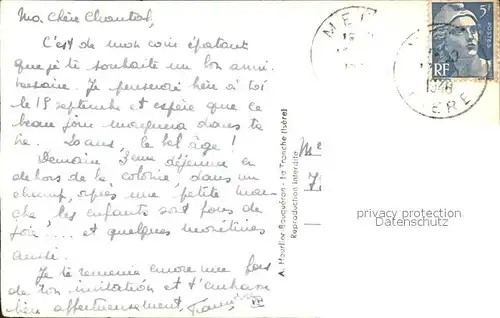 Ma Chère Chantal,
C'est de mon coin épatant
que je te souhaite un bon anni-
versaire. Je penserai bien à toi
le 19 septembre et espère que ce
beau jour marquera dans ta
vie. 20 ans, le bel âge !
Demain 3ème déjeuner en
dehors de la colonie, dans un
champ, après une petite mar-
che, les enfants sont fous de
joie .... et quelques monitrices
aussi.
Je te remercie encore une fois
de ton invitation et t'embrasse
bien affectueusement,
A. Mourlin-Bouquéron - La Tronche (Isère)
Reproduction interdite
5F
RF
1948
ISERE
privacy protection
Datenschutz